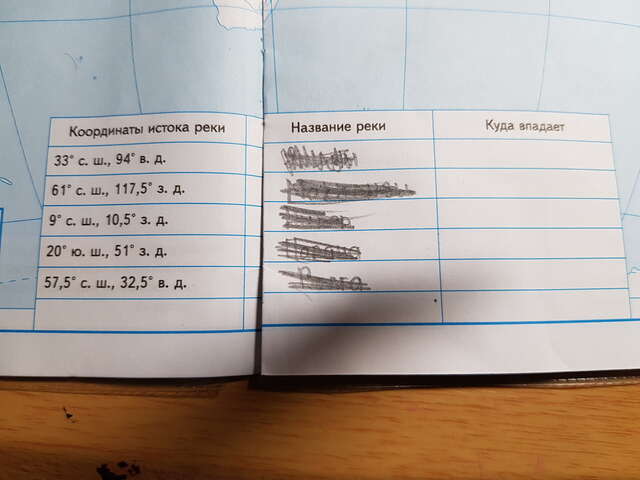 Координаты истока реки Название реки Куда впадает
33° с. ш., 94° в. д.
61° с. ш., 117,5° з. д.
9° с. ш., 10,5° з. д.
20° ю. ш., 51° з. д.
57,5° с. ш., 32,5° в. д.